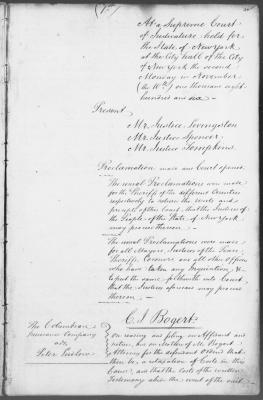 At a Supreme Court
of Judicature held for
the State of New York
at the City Hall of the City
of New York the second
Monday in November
(the 10th) one thousand eight
hundred and six —
Present
Mr. Justice Livingston
Mr. Justice Spencer
Mr. Justice Tompkins
Proclamation made and Court opened
The usual Proclamations were made
for the Sheriffs of the different Counties
respectively to return the writs and
precepts of this Court, that the Justices of
the People of the State of New York
may proceed thereon
The usual Proclamations were made
for all Mayors, Justices of the Peace,
Sheriffs, Coroners and all other officers
who have taken any Inquisition &
to put the same into Court
that the Justices aforesaid may proceed
thereon
C. S. Bogert
The Columbian
Insurance Company
ads.
Peter
On reading and filing an Affidavit and
notice, and on Motion of Mr. Bogert
Attorney for the defendant Ordered that
there be a retaxation of Costs in this
Cause, and that the costs of the written
Testimony abide the event of the suit